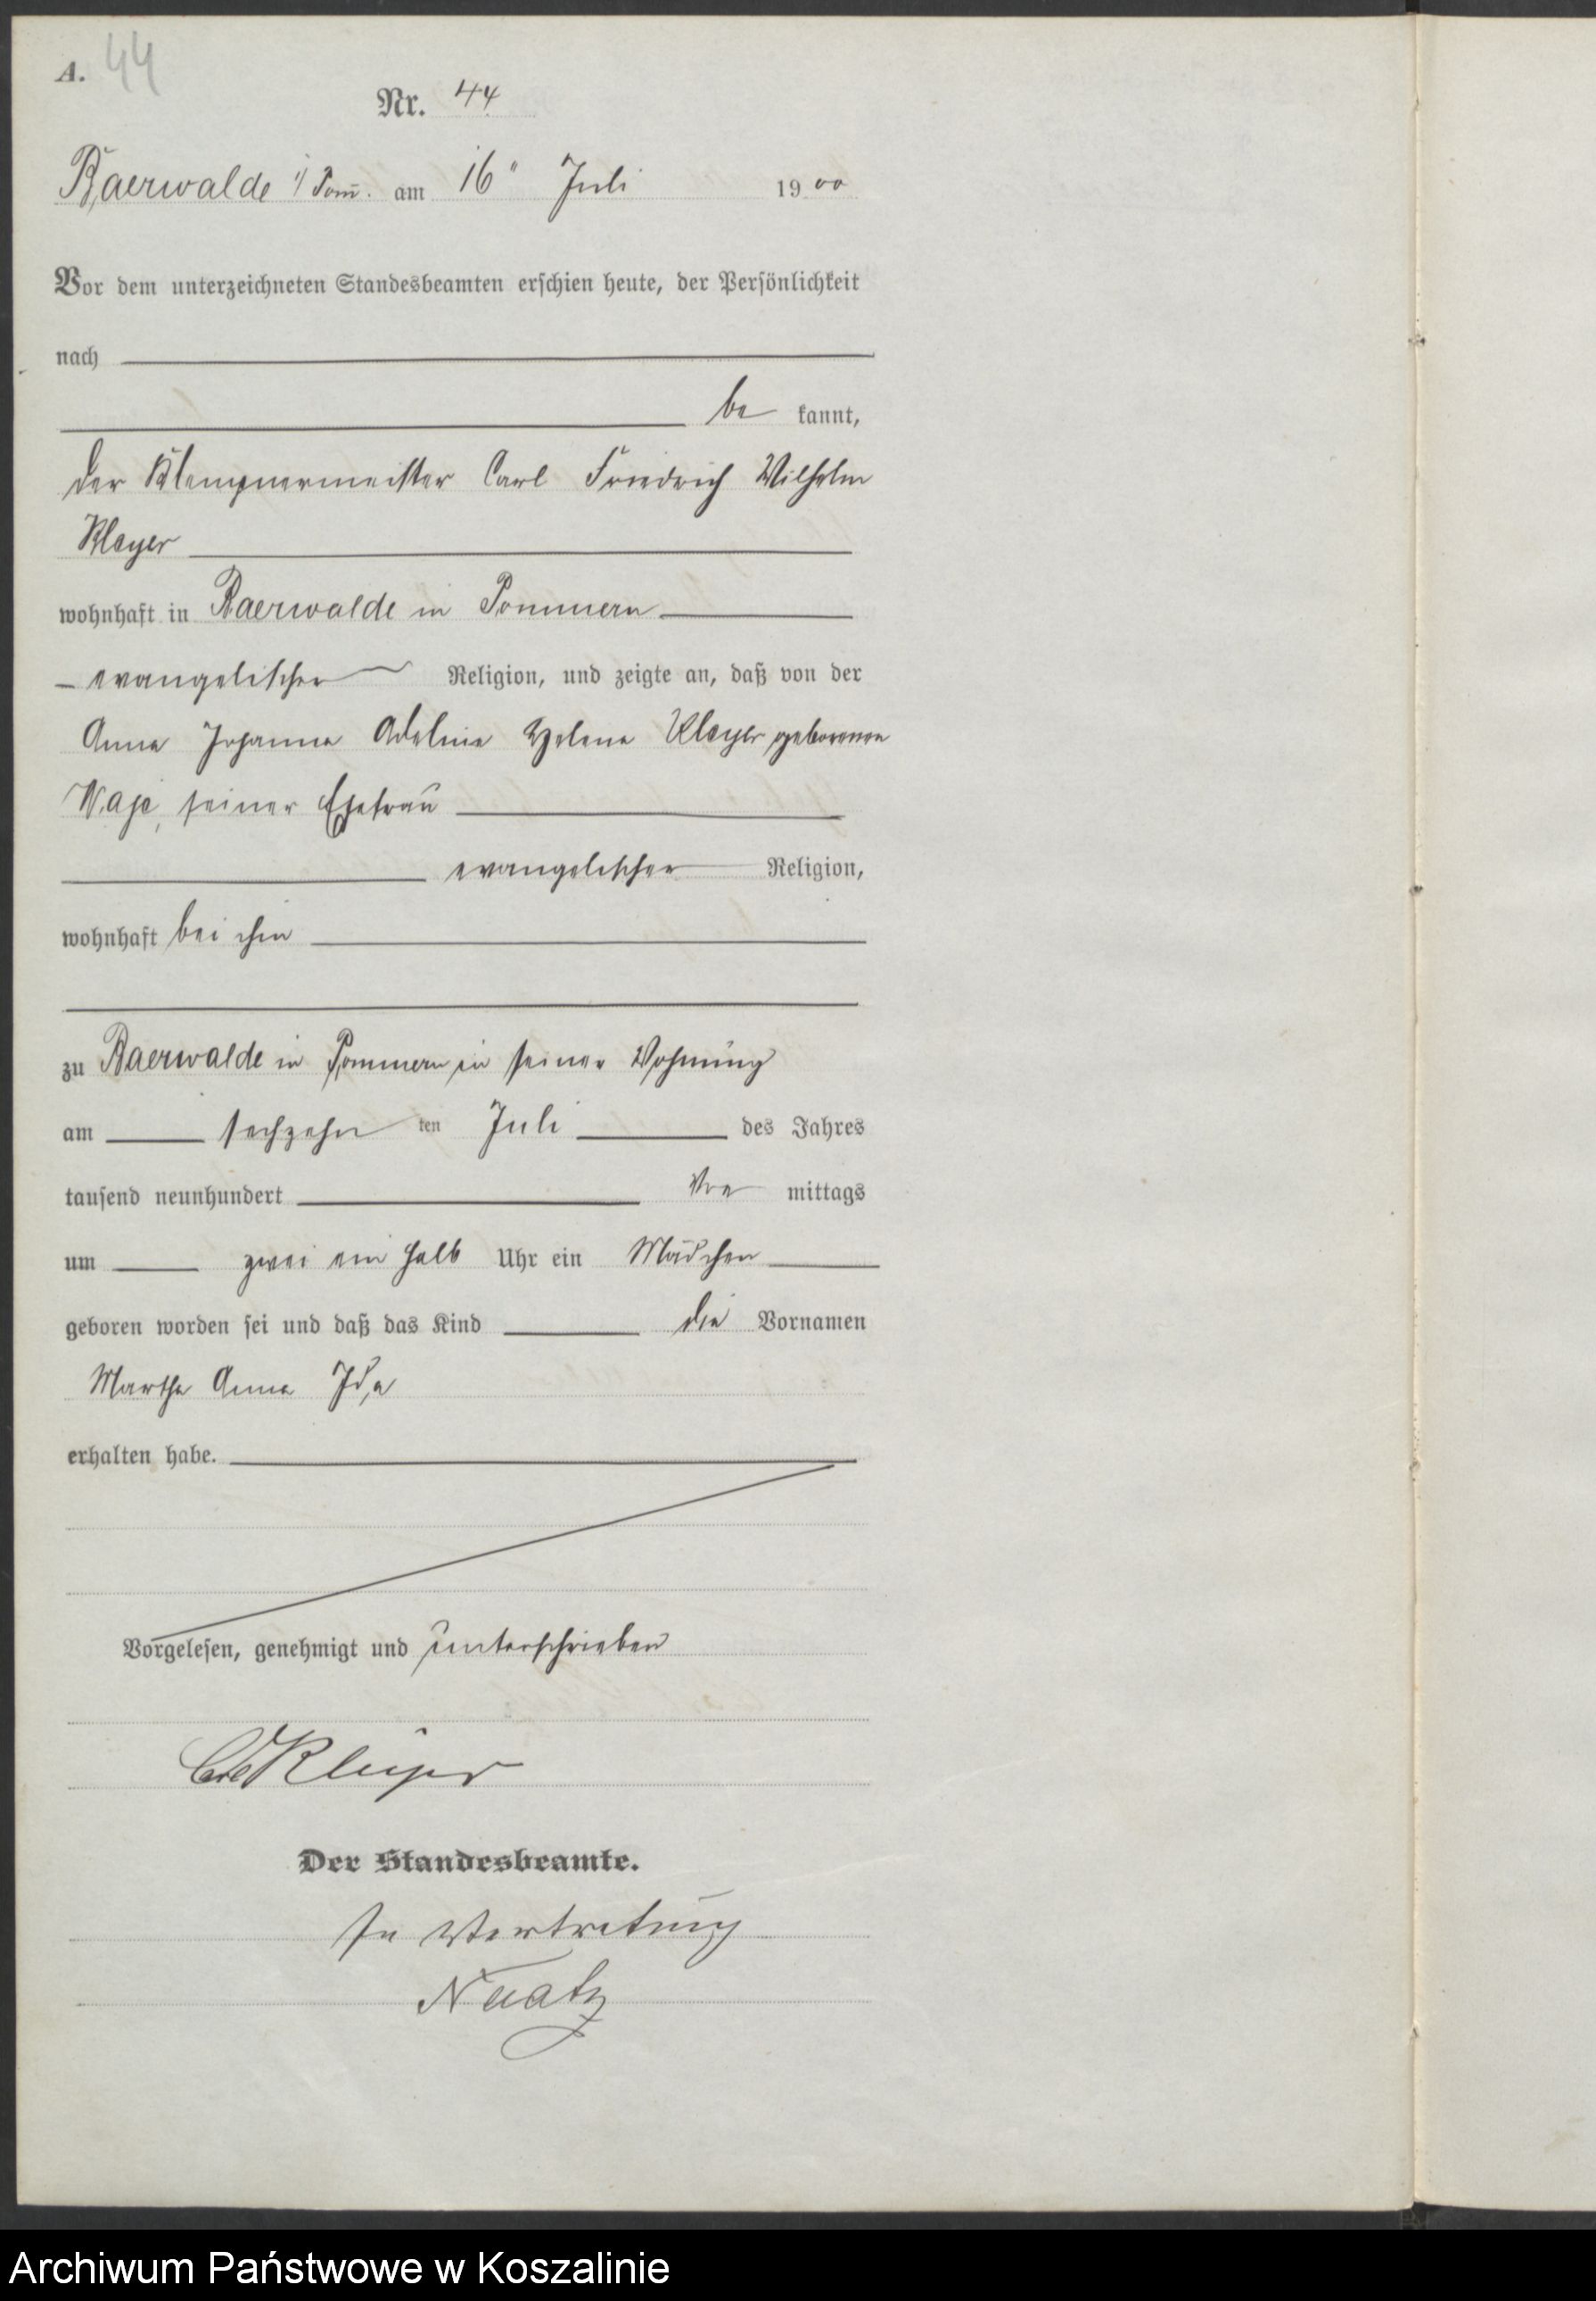 A. 44
Nr. 44
Baerwalde i/ Pom̄. am 16" Juli 1900
Vor dem unterzeichneten Standesbeamten erschien heute, der Persönlichkeit
nach
be kannt,
der Klempnermeister Carl Friedrich Wilhelm
wohnhaft in Baerwalde in Pommern
evangelischer Religion, und zeigte an, daß von der
Anna Johanna Adeline Helene geborenen
seiner Ehefrau
evangelischer Religion,
wohnhaft bei ihm
zu Baerwalde in Pommern in seiner Wohnung
am sechzehn ten Juli des Jahres
tausend neunhundert Vor mittags
um zwei ein halb Uhr ein Mädchen
geboren worden sei und daß das Kind die Vornamen
Martha Anna Ida
erhalten habe.
Vorgelesen, genehmigt und unterschrieben
Der Standesbeamte.
In Vertretung
Archiwum Państwowe w Koszalinie